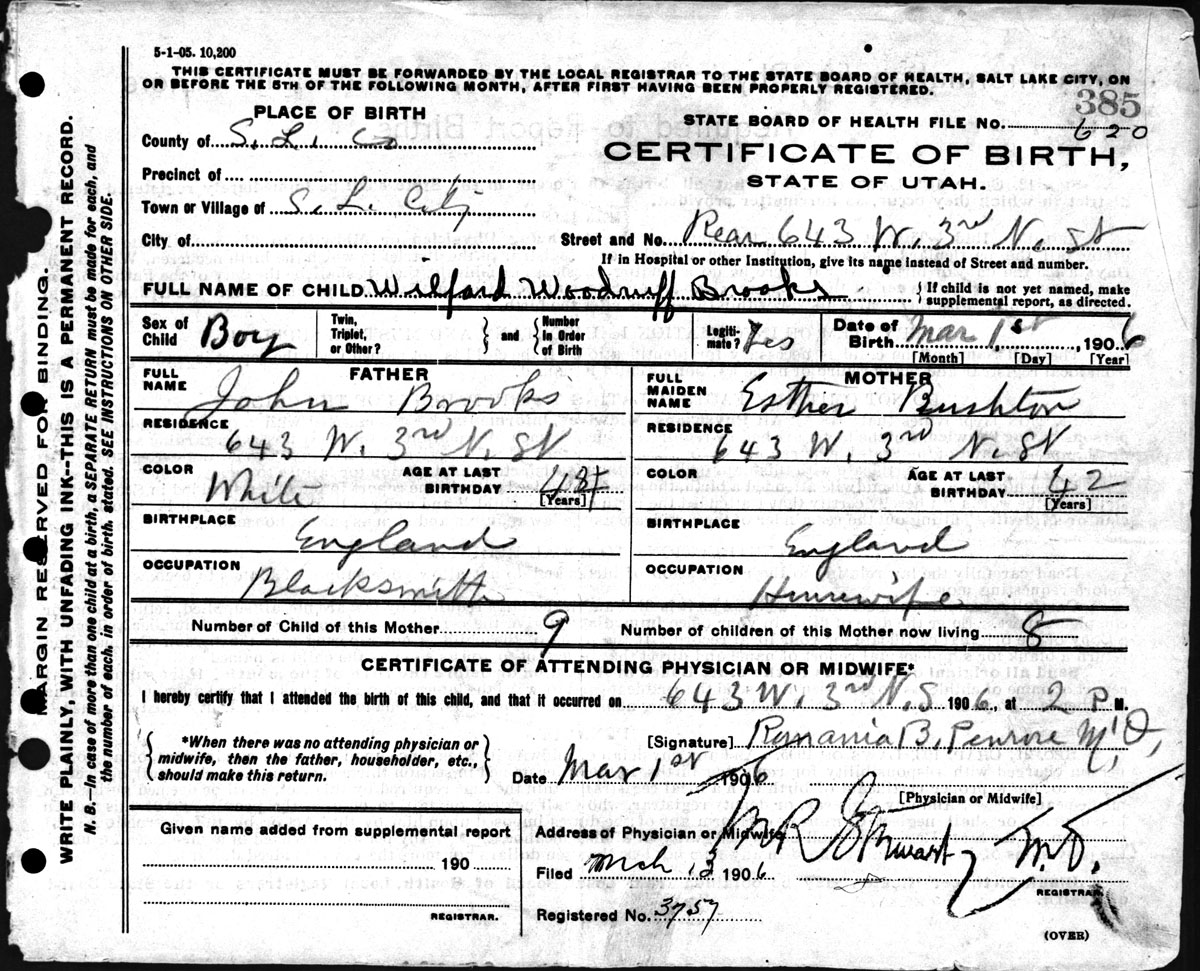 5-1-05. 10,200
THIS CERTIFICATE MUST BE FORWARDED BY THE LOCAL REGISTRAR TO THE STATE BOARD OF HEALTH, SALT LAKE CITY, ON
OR BEFORE THE 5TH OF THE FOLLOWING MONTH, AFTER FIRST HAVING BEEN PROPERLY REGISTERED.
385
PLACE OF BIRTH
STATE BOARD OF HEALTH FILE NO. 620
County of S. L. Co
CERTIFICATE OF BIRTH,
STATE OF UTAH.
Precinct of
Town or Village of S. L. City
City of
Street and No. Rear 643 W. 3rd N. St
If in Hospital or other Institution, give its name instead of Street and number.
FULL NAME OF CHILD Wilford Woodruff Brooks { If child is not yet named, make supplemental report, as directed.
Sex of Child Boy Twin, Triplet, or Other? } and { Number in Order of Birth Legiti-mate? Yes Date of Birth Mar 1st, 1906
[Month] [Day] [Year]
FATHER
MOTHER
FULL NAME John Brooks
FULL MAIDEN NAME Esther Rushton
RESIDENCE 643 W. 3rd N. St
RESIDENCE 643 W. 3rd N. St
COLOR White AGE AT LAST BIRTHDAY [Years]
COLOR AGE AT LAST BIRTHDAY 42 [Years]
BIRTHPLACE England
BIRTHPLACE England
OCCUPATION Blacksmith
OCCUPATION Housewife
Number of Child of this Mother 9 Number of children of this Mother now living 8
CERTIFICATE OF ATTENDING PHYSICIAN OR MIDWIFE*
I hereby certify that I attended the birth of this child, and that it occurred on 643 W. 3rd N. S 1906, at 2 P M.
*When there was no attending physician or
midwife, then the father, householder, etc.,
should make this return.
[Signature] Romania B. Penrose M.D.
Date Mar 1st 1906
[Physician or Midwife]
Given name added from supplemental report
190
REGISTRAR.
Address of Physician or Midwife
Stewart M.D.
Filed Mch 3 1906
REGISTRAR.
Registered No. 3757
(OVER)
MARGIN RESERVED FOR BINDING.
WRITE PLAINLY, WITH UNFADING INK--THIS IS A PERMANENT RECORD.
N. B.--In case of more than one child at a birth, a SEPARATE RETURN must be made for each, and
the number of each, in order of birth, stated. SEE INSTRUCTIONS ON OTHER SIDE.